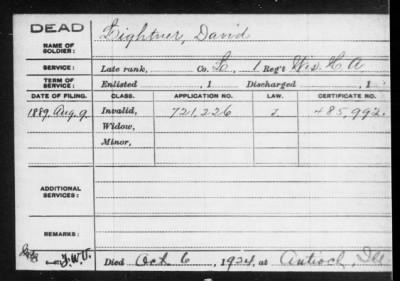 DEAD
NAME OF SOLDIER: Lightner, David
SERVICE: Late rank, Co. L, 1 Reg't Wis. H A
TERM OF SERVICE: Enlisted , 1 Discharged , 1
DATE OF FILING. CLASS. APPLICATION NO. LAW. CERTIFICATE NO.
1889, Aug. 9. Invalid, 721,226 485,992.
Widow,
Minor,
ADDITIONAL SERVICES:
REMARKS:
Died Oct 6, 1924, at Antioch, Ill